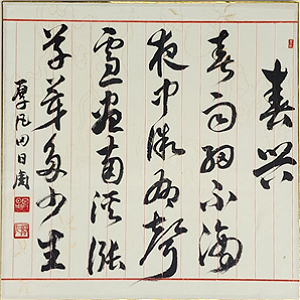 春兴
春雨細不滴
夜中微有聲
雪盡南溪漲
草芽多少生
田日